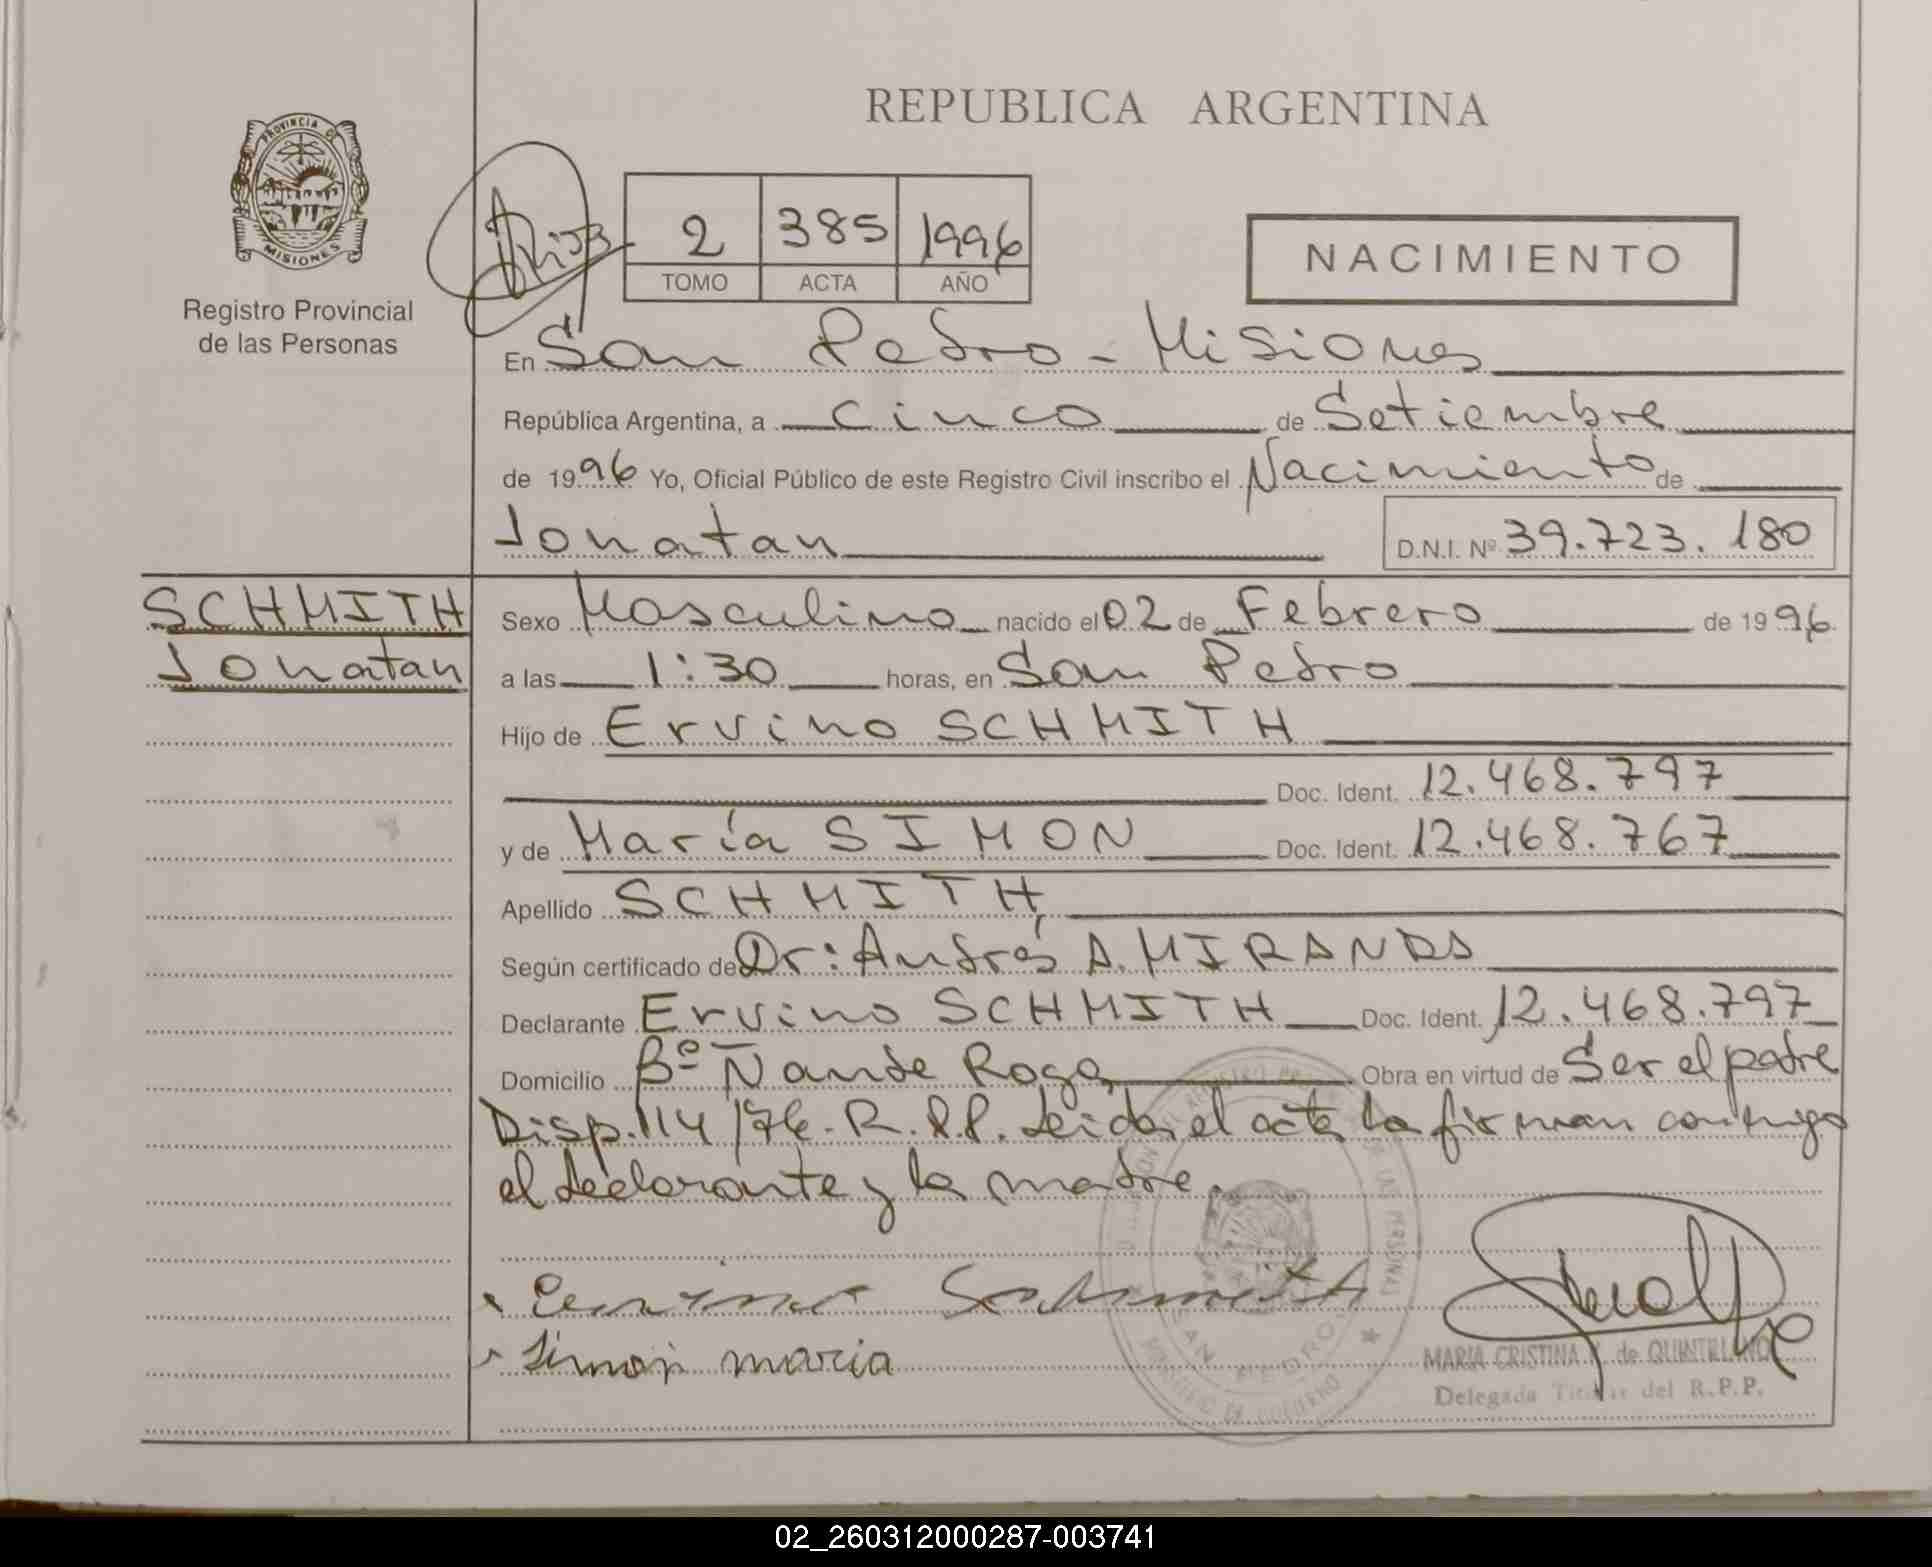 REPUBLICA ARGENTINA
PROVINCIA DE
MISIONES
Registro Provincial
de las Personas
2 385 1996
TOMO ACTA AÑO
NACIMIENTO
En San Pedro - Misiones
República Argentina, a cinco de Setiembre
de 1996 Yo, Oficial Público de este Registro Civil inscribo el Nacimiento de
Jonatan D.N.I. Nº 39.723.180
SCHMITH
Jonatan
Sexo Masculino nacido el 02 de Febrero de 1996
a las 1:30 horas, en San Pedro
Hijo de Ervino SCHMITH
Doc. Ident. 12.468.797
y de María SIMON Doc. Ident. 12.468.767
Apellido SCHMITH
Según certificado de Dr: Andrés A. MIRANDA
Declarante Ervino SCHMITH Doc. Ident. 12.468.797
Domicilio Bº Ñande Roga Obra en virtud de Ser el padre
Disp. 114/76. R.P.P. Leída el acta la firman conmigo
el declarante y la madre.
Schmith
Simon maria
SAN PEDRO
MINISTERIO DE GOBIERNO
MARIA CRISTINA de QUINTELANO
Delegada Titular del R.P.P.
02_260312000287-003741